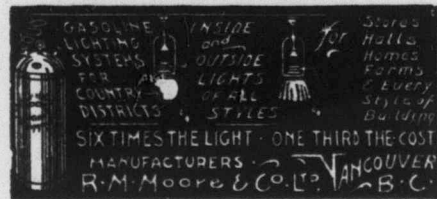 GASOLINE
LIGHTING
SYSTEMS
FOR
COUNTRY
DISTRICTS
INSIDE
and
OUTSIDE
LIGHTS
OF ALL
STYLES
for
Stores
Halls
Homes
Farms
& Every
Style of
Building
SIX TIMES THE LIGHT - ONE THIRD THE COST
MANUFACTURERS -
R. M. Moore & Co. LTD. VANCOUVER
B. C.